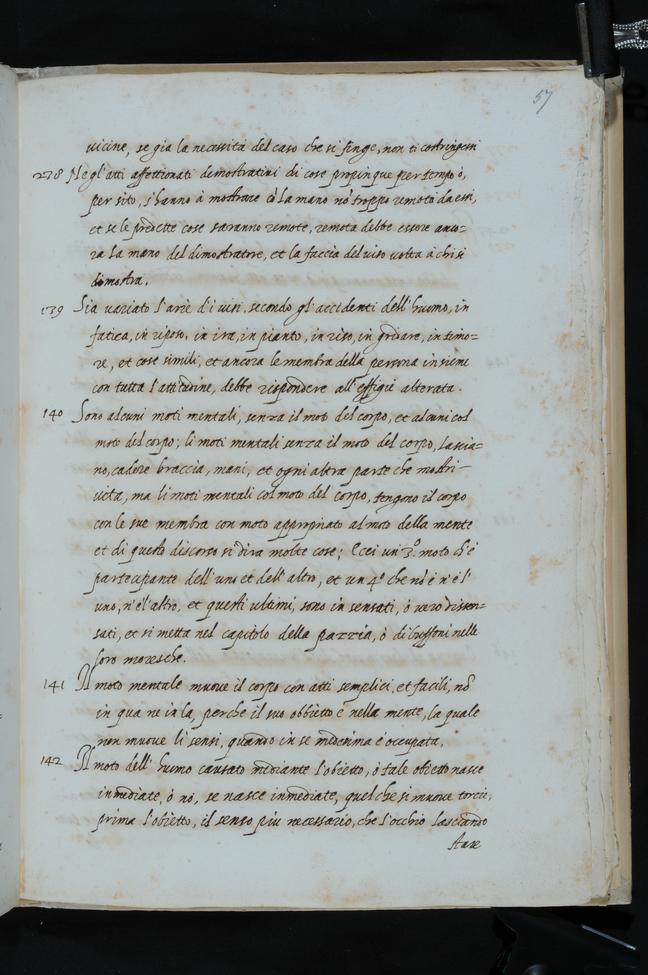 57
vicine, se gia la necessità del caso che si finge, non ti costringessi
238 Ne gl'atti affettionati demostratiui di cose propinque per tempo ò,
per sito, s'hanno à mostrare cõ la mano nõ troppo remota da essi,
et se le predette cose saranno remote, remota debbe essere anco=
ra la mano del dimostratore, et la faccia del uiso uolta à chi si
dimostra.
139 Sia uariato l'arie d'i uisi, secondo gl'accidenti dell'huomo, in
fatica, in riposo, in ira, in pianto, in riso, in gridare, in timo=
re, et cose simili, et ancora le membra della persona insieme
con tutta l'attitudine, debbe rispondere all'effigie alterata.
140 Sono alcuni moti mentali, senza il moto del corpo, et alcuni col
moto del corpo; li moti mentali senza il moto del corpo, lascia=
no, cadere braccia, mani, et ogni altra parte che mostri
uita, ma li moti mentali col moto del corpo, tengono il corpo
con le sue membra con moto appropriato al moto della mente
et di questo discorso si dira molte cose; Ecci un 3.º moto ch'è
partecipante dell'uno et dell'altro, et un 4º che nõ è n'è l'
uno, n'è l'altro, et questi ultimi, sono insensati, ò uero dissen=
sati, et si metta nel capitolo della pazzia, ò di buffoni nelle
loro moresche.
141 Il moto mentale muoue il corpo con atti semplici, et facili, nõ
in qua ne in la, perche il suo obbietto è nella mente, la quale
non muoue li sensi, quando in se medesima è occupata.
142 Il moto dell'huomo causato mediante l'obietto, ò tale obietto nasce
inmediate, ò nò, se nasce inmediate, quel che si muoue torcie,
prima l'obietto, il senso piu necessario, che l'occhio lasciando
stare